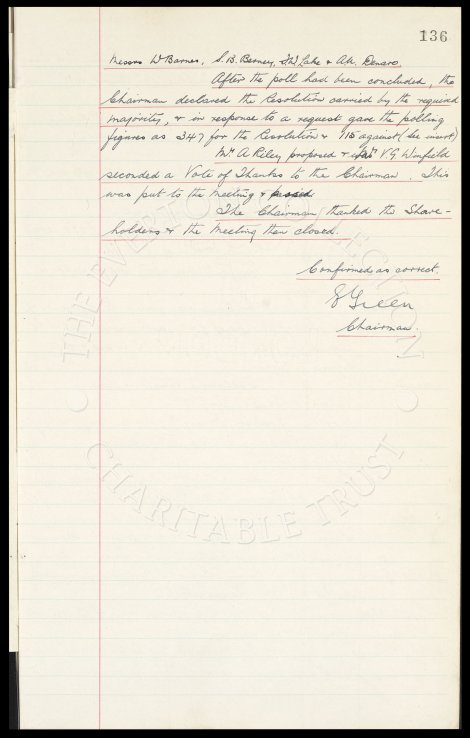 136
Messrs W Barnes, S.B. Berney, Lake & Denaro.
After the poll had been concluded, the
Chairman declared the Resolution carried by the required
majority, & in response to a request gave the polling
figures as 347 for the Resolution & 115 against (see insert)
Mr. A Riley proposed & Mr V.G. Winfield
seconded a Vote of Thanks to the Chairman. This
was put to the meeting & passed.
The Chairman thanked the Share-
holders & the Meeting then closed.
Confirmed as correct.
E Green
Chairman.
THE EVERTON COLLECTION
CHARITABLE TRUST